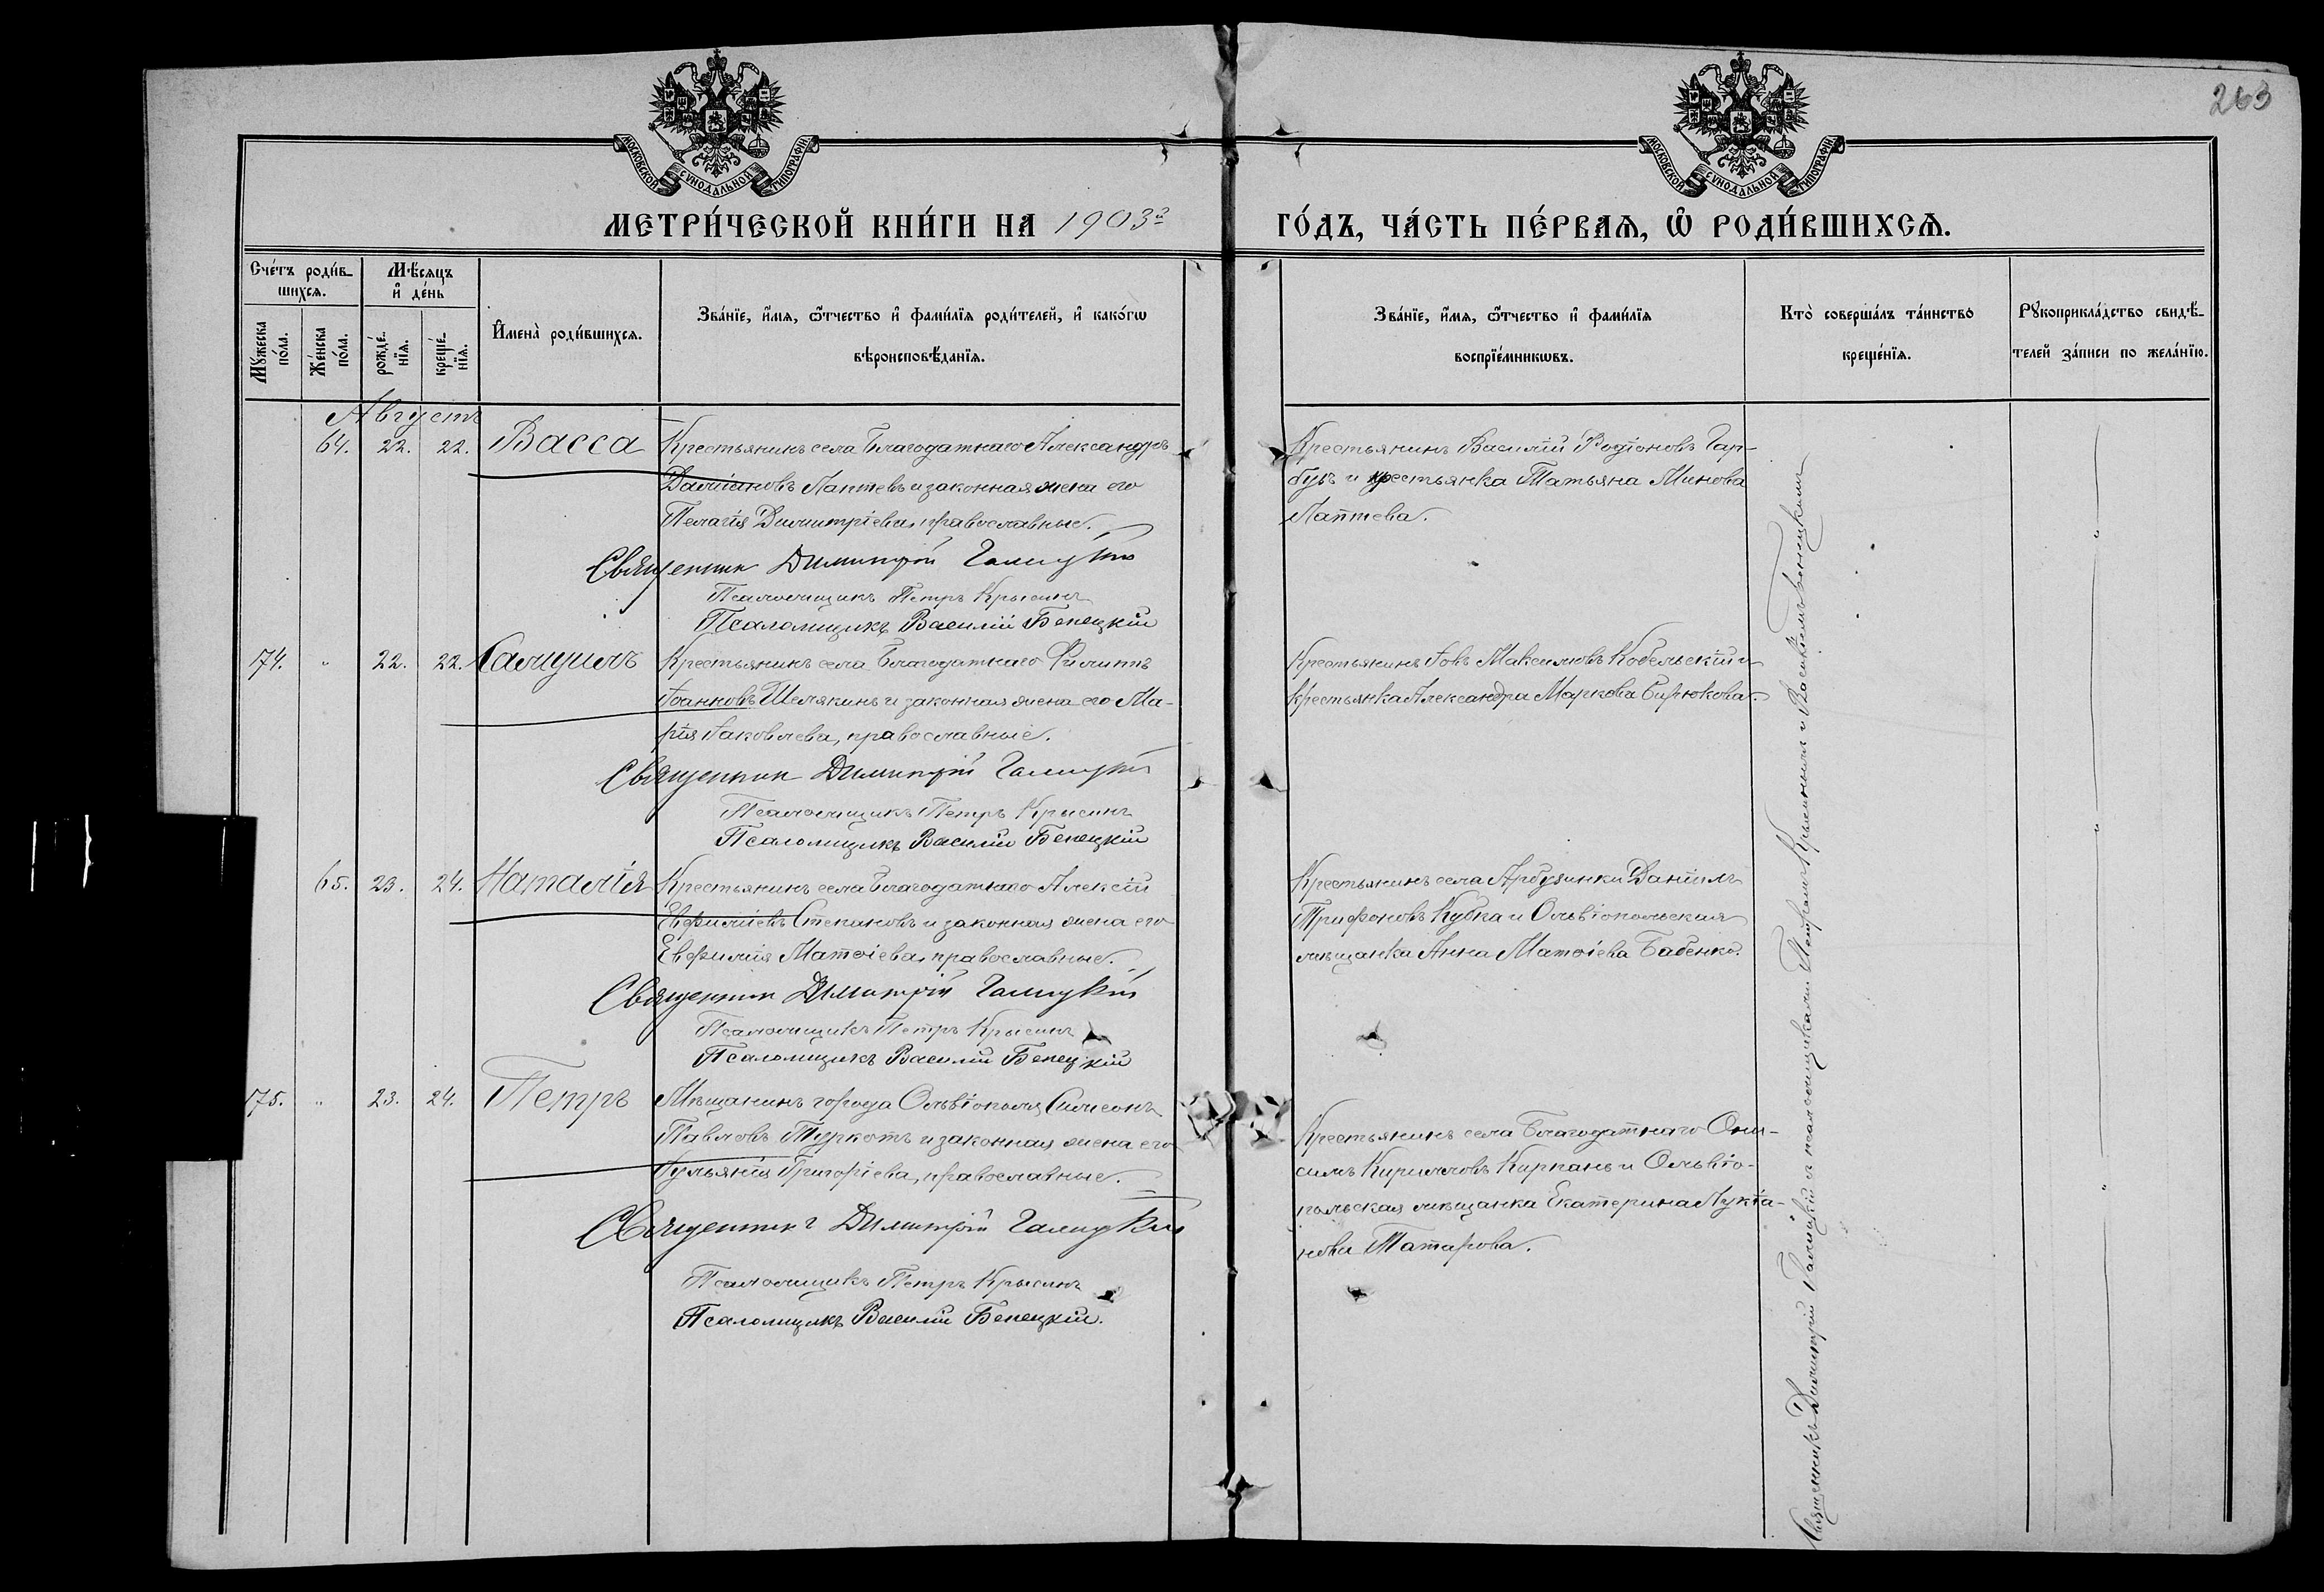 263
МОСКОВСКОЙ СѴНОДАЛЬНОЙ ТИПОГРАФІИ
МОСКОВСКОЙ СѴНОДАЛЬНОЙ ТИПОГРАФІИ
МЕТРИ́ЧЕСКОЙ КНИ́ГИ НА 1903й ГО́ДЪ, ЧА́СТЬ ПЕ́РВАѦ, Ѽ РОДИ́ВШИХСѦ.
Сче́тъ роди́в-
шихсѧ.
Мꙋ́жеска
по́ла.
Же́нска
по́ла.
Мѣ́сѧцъ
и҆ де́нь
рожде́-
нїѧ.
креще́-
нїѧ.
И҆мена̀ роди́вшихсѧ.
Зва́нїе, и҆́мѧ, ѻ҆́тчество и҆ фами́лїѧ роди́телей, и҆ како́гѡ
вѣроисповѣ́данїѧ.
Зва́нїе, и҆́мѧ, ѻ҆́тчество и҆ фами́лїѧ
воспрїе́мникѡвъ.
Кто̀ соверша́лъ та́инство
креще́нїѧ.
Рꙋкоприкла́дство свидѣ́-
телей за́писи по жела́нїю.
Августъ
64. 22. 22. Васса
Крестьянинъ села Благодатнаго Александръ
Даміановъ Лаптевъ и законная жена его
Пелагія Димитріева, православные.
Священник Димитрій Галицкій
Псаломщикъ Петръ Крысинъ
Псаломщикъ Василій Бенецкій
Крестьянинъ Василій Родіоновъ Гар-
бузъ и крестьянка Татьяна Минова
Лаптева.
174. " 22. 22. Самуилъ
Крестьянинъ села Благодатнаго Филиппъ
Іоанновъ Шелякинъ и законная жена его Ма-
рія Іаковлева, православные.
Священник Димитрій Галицкій
Псаломщикъ Петръ Крысинъ
Псаломщикъ Василій Бенецкій
Крестьянинъ Іовъ Максимовъ Кобельскій и
крестьянка Александра Маркова Бирюкова.
65. 23. 24. Наталія
Крестьянинъ села Благодатнаго Алексій
Евфиміевъ Степановъ и законная жена его
Евфимія Матѳіева, православные.
Священник Димитрій Галицкій
Псаломщикъ Петръ Крысинъ
Псаломщикъ Василій Бенецкій
Крестьянинъ села Арбузинки Даніилъ
Трифоновъ Кубка и Ольвіопольская
мѣщанка Анна Матѳіева Бабенко.
175. " 23. 24. Петръ
Мѣщанинъ города Ольвіополя Симеонъ
Павловъ Туркотъ и законная жена его
Іульянія Григоріева, православные.
Священникъ Димитрій Галицкій
Псаломщикъ Петръ Крысинъ
Псаломщикъ Василій Бенецкій.
Крестьянинъ села Благодатнаго Они-
симъ Кирилловъ Кирпань и Ольвіо-
польская мѣщанка Екатерина Лукіа-
нова Татарова.
Священникъ Димитрій Галицкій съ псаломщиками Петромъ Крысинымъ и Василіемъ Бенецкимъ